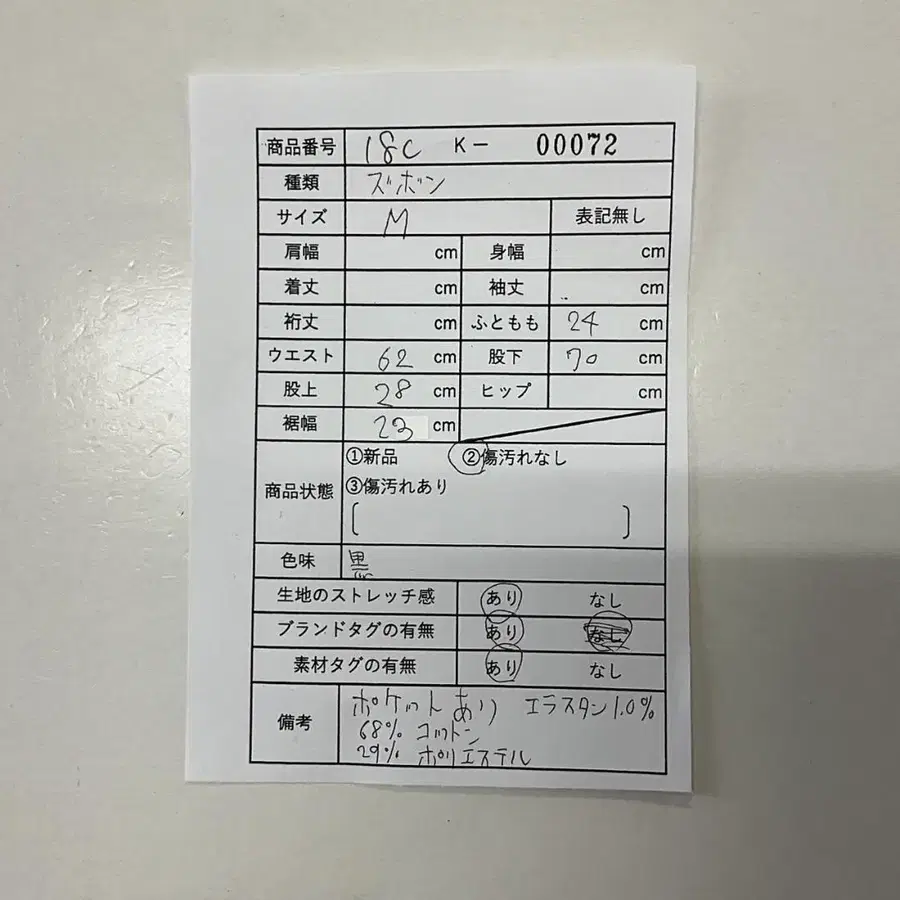 商品番号 18C K- 00072
種類 ズボン
サイズ M 表記無し
肩幅 cm 身幅 cm
着丈 cm 袖丈 cm
裄丈 cm ふともも 24 cm
ウエスト 62 cm 股下 70 cm
股上 28 cm ヒップ cm
裾幅 23 cm
商品状態 ①新品 ②傷汚れなし
③傷汚れあり
[ ]
色味 黒
生地のストレッチ感 あり なし
ブランドタグの有無 あり なし
素材タグの有無 あり なし
備考 ポケットあり エラスタン1.0%
68% コットン
29% ポリエステル